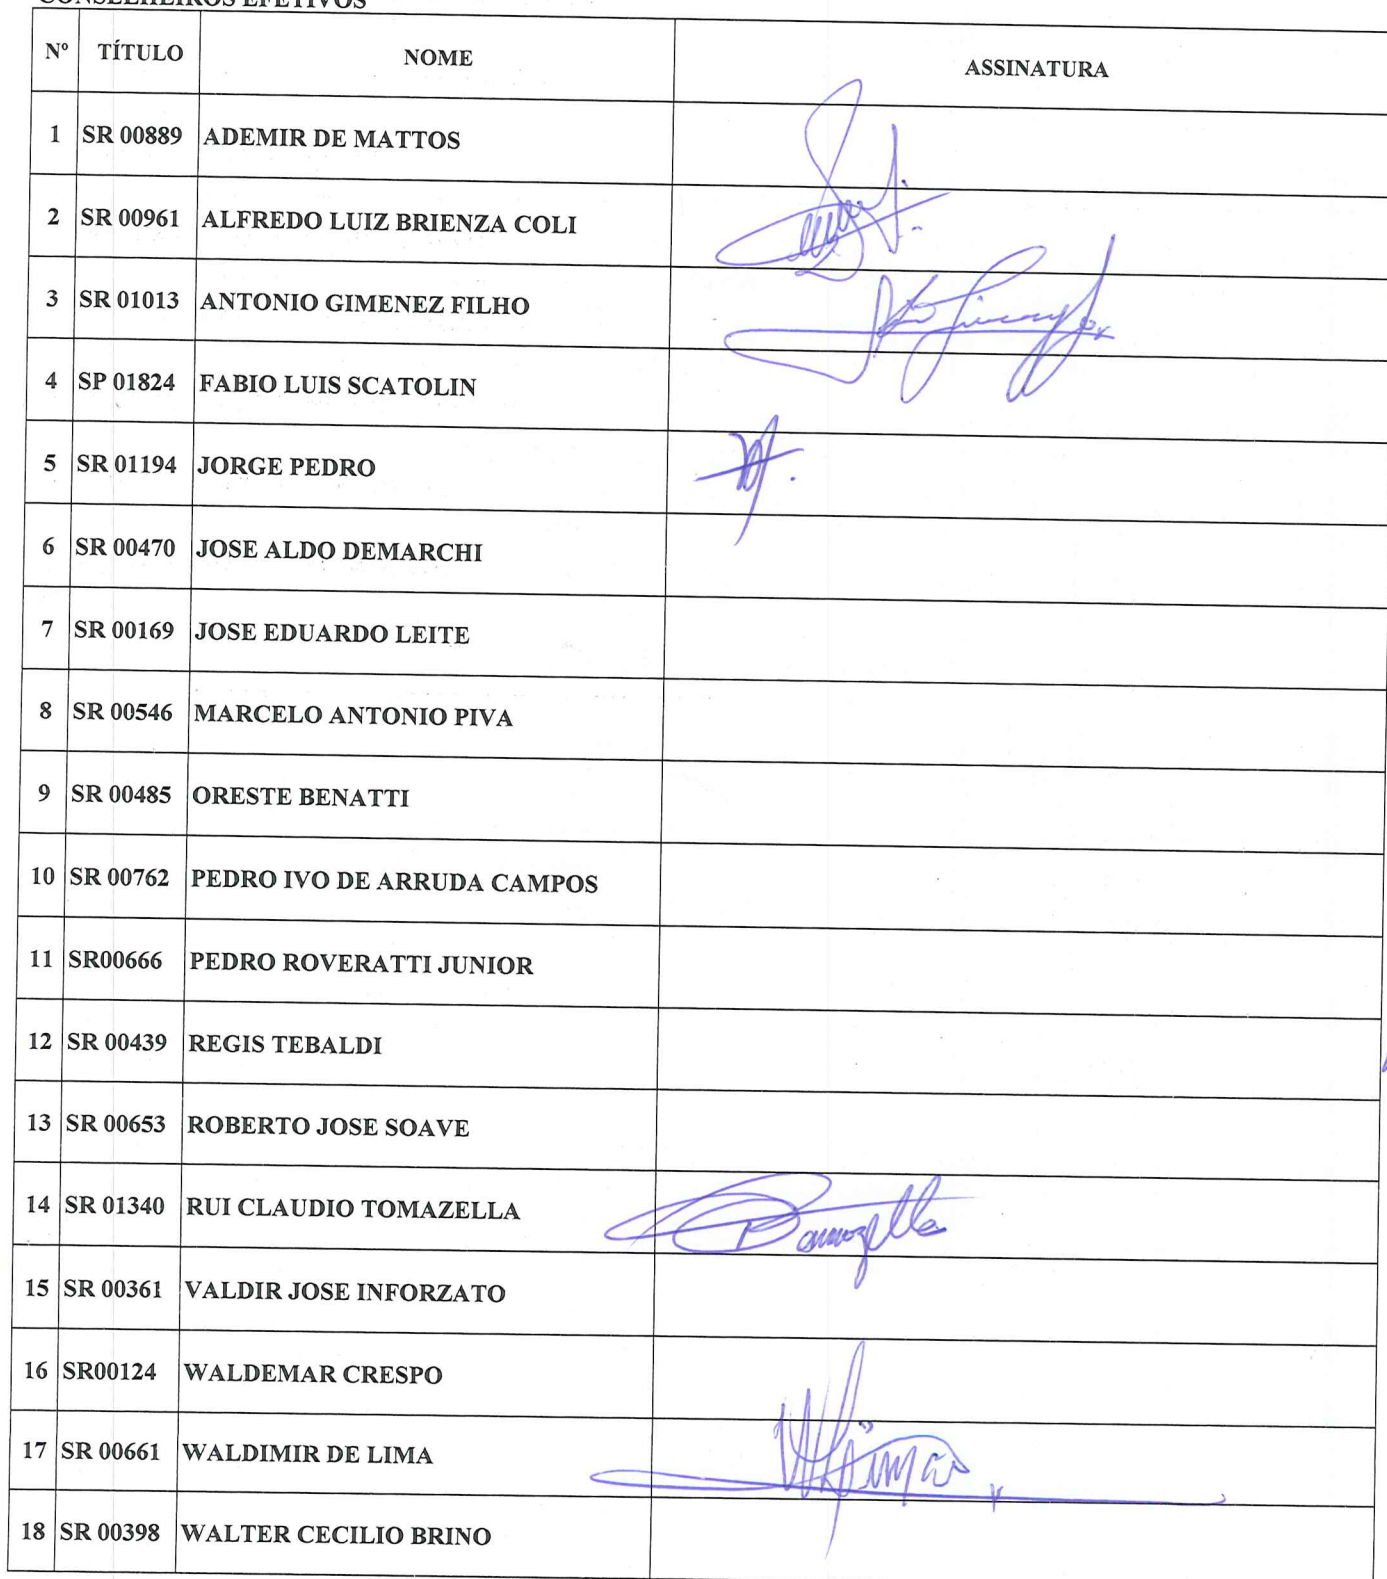 CONSELHEIROS EFETIVOS
Nº TÍTULO NOME ASSINATURA
1 SR 00889 ADEMIR DE MATTOS
2 SR 00961 ALFREDO LUIZ BRIENZA COLI
3 SR 01013 ANTONIO GIMENEZ FILHO
4 SP 01824 FABIO LUIS SCATOLIN
5 SR 01194 JORGE PEDRO
6 SR 00470 JOSE ALDO DEMARCHI
7 SR 00169 JOSE EDUARDO LEITE
8 SR 00546 MARCELO ANTONIO PIVA
9 SR 00485 ORESTE BENATTI
10 SR 00762 PEDRO IVO DE ARRUDA CAMPOS
11 SR00666 PEDRO ROVERATTI JUNIOR
12 SR 00439 REGIS TEBALDI
13 SR 00653 ROBERTO JOSE SOAVE
14 SR 01340 RUI CLAUDIO TOMAZELLA
15 SR 00361 VALDIR JOSE INFORZATO
16 SR00124 WALDEMAR CRESPO
17 SR 00661 WALDIMIR DE LIMA
18 SR 00398 WALTER CECILIO BRINO